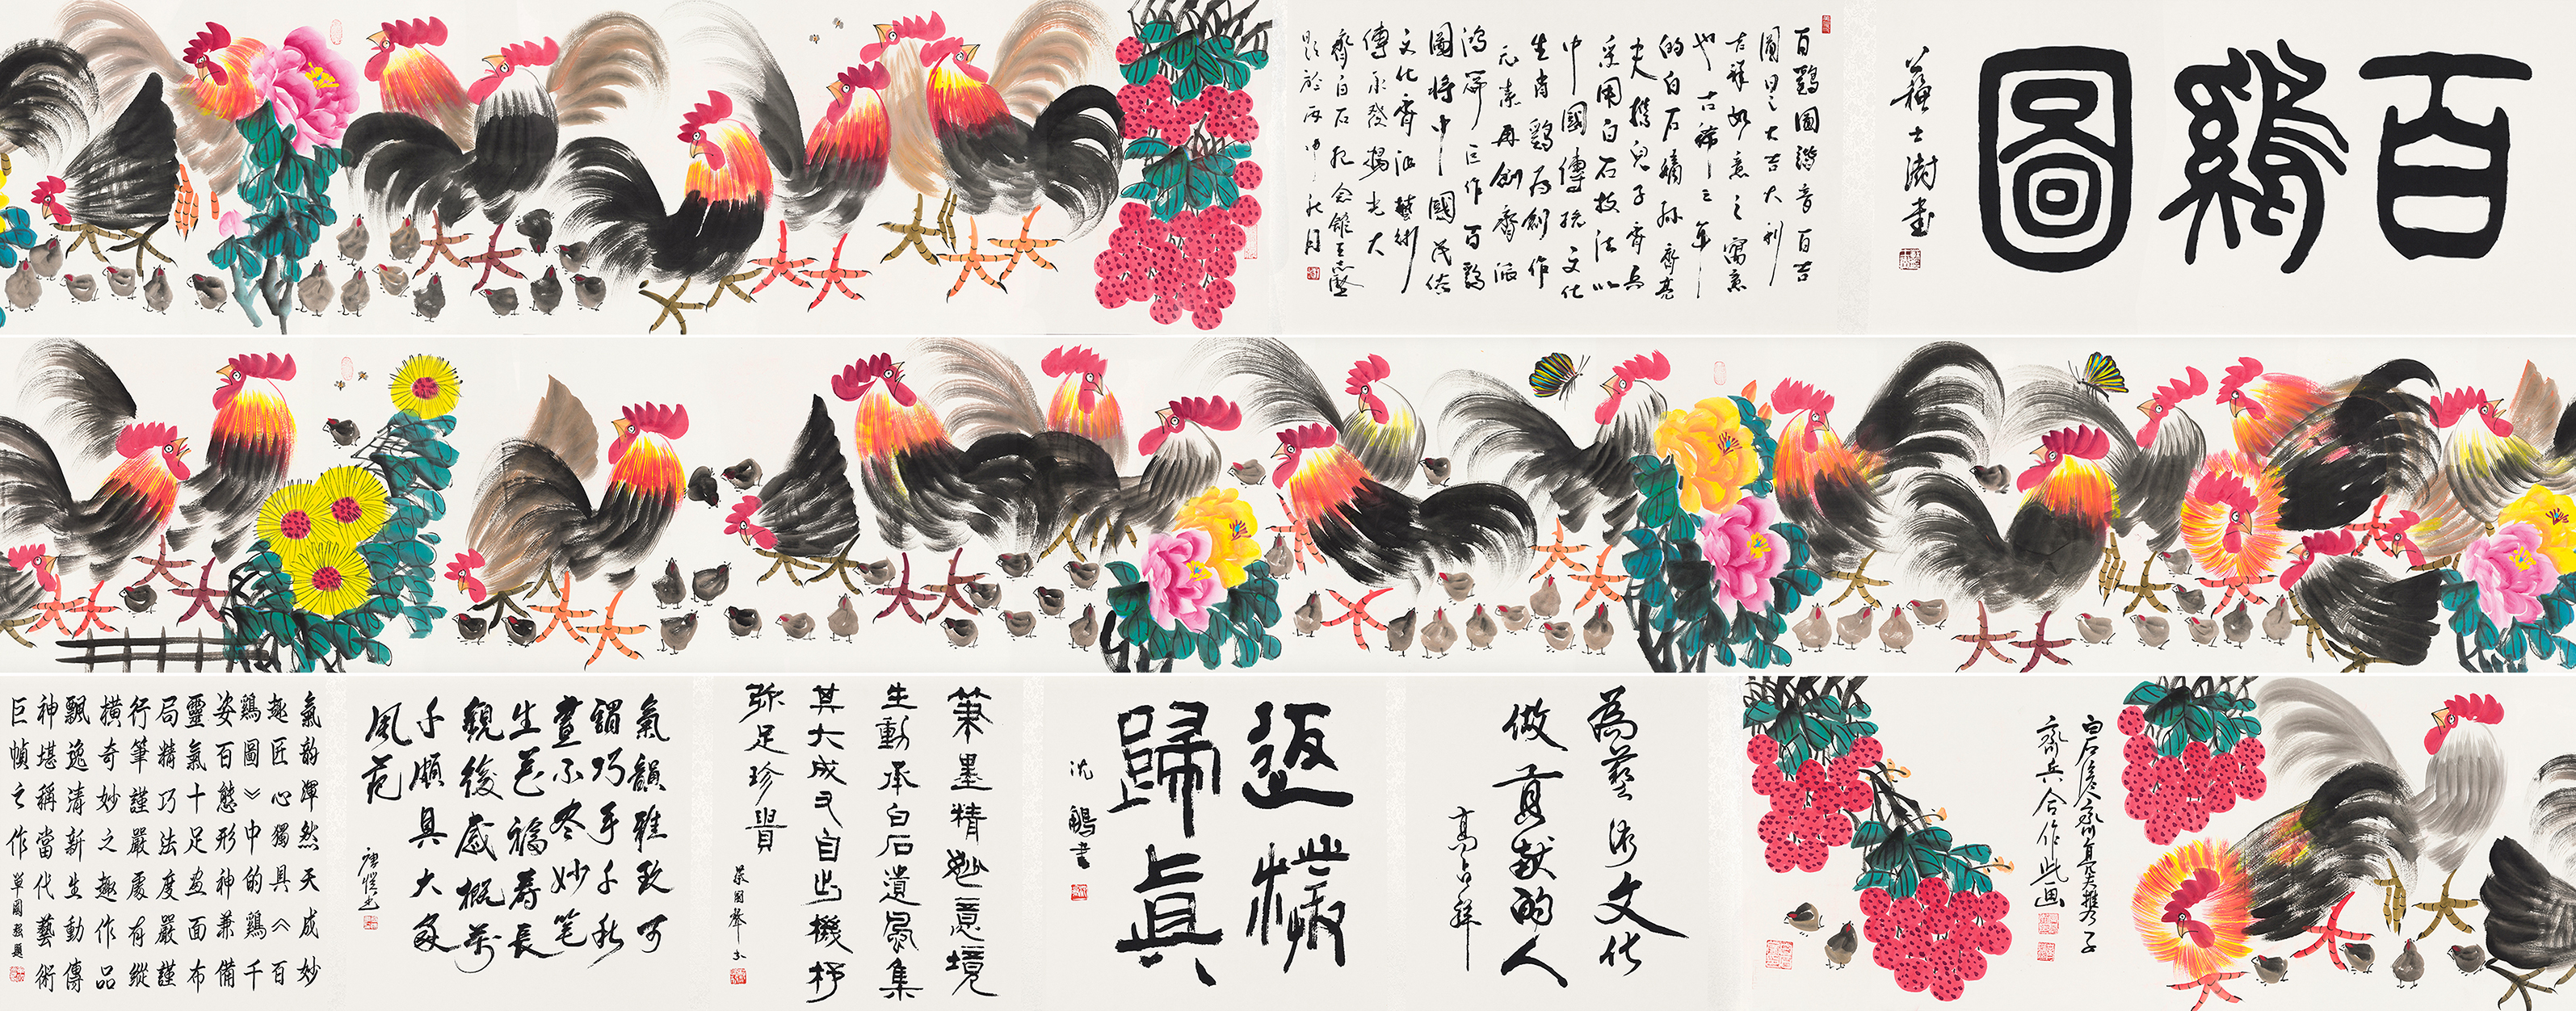 百鷄圖
蘇士澍書
百鷄圖諧音百吉
圖日之大吉大利
吉祥如意之寓意
也古稀之年
的白石嫡孫齊亮
夫携兒子齊兵
采用白石技法以
中國傳統文化
生肖鷄为創作
元素再創齊派
鴻篇巨作百鷄
圖将中國民俗
文化齊派藝術
傳承發揚光大
齊白石紀念館
題於丙申秋月
白石后人齊亮夫携子
齊兵合作此画
為藝術文化
做貢献的人
高占祥
返樸
歸真
沈鵬書
筆墨精妙意境
生動承白石遺風集
其大成又自出機杼
弥足珍貴
氣韻雅致可
謂巧手千秋
畫不冬妙笔
生花福寿長
觀後感概萬
千頗具大家
風范
唐愷书
氣韵渾然天成妙
趣匠心獨具《百
鷄圖》中的鷄千
姿百態形神兼備
靈氣十足畫面布
局精巧法度嚴謹
行筆謹嚴處有縱
横奇妙之趣作品
飄逸清新生動傳
神堪稱當代藝術
巨幀之作 單國强題